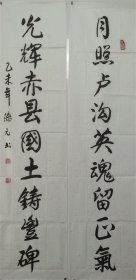 月照卢沟英魂留正氣
光輝赤县國土鑄豐碑
乙未年 德元书